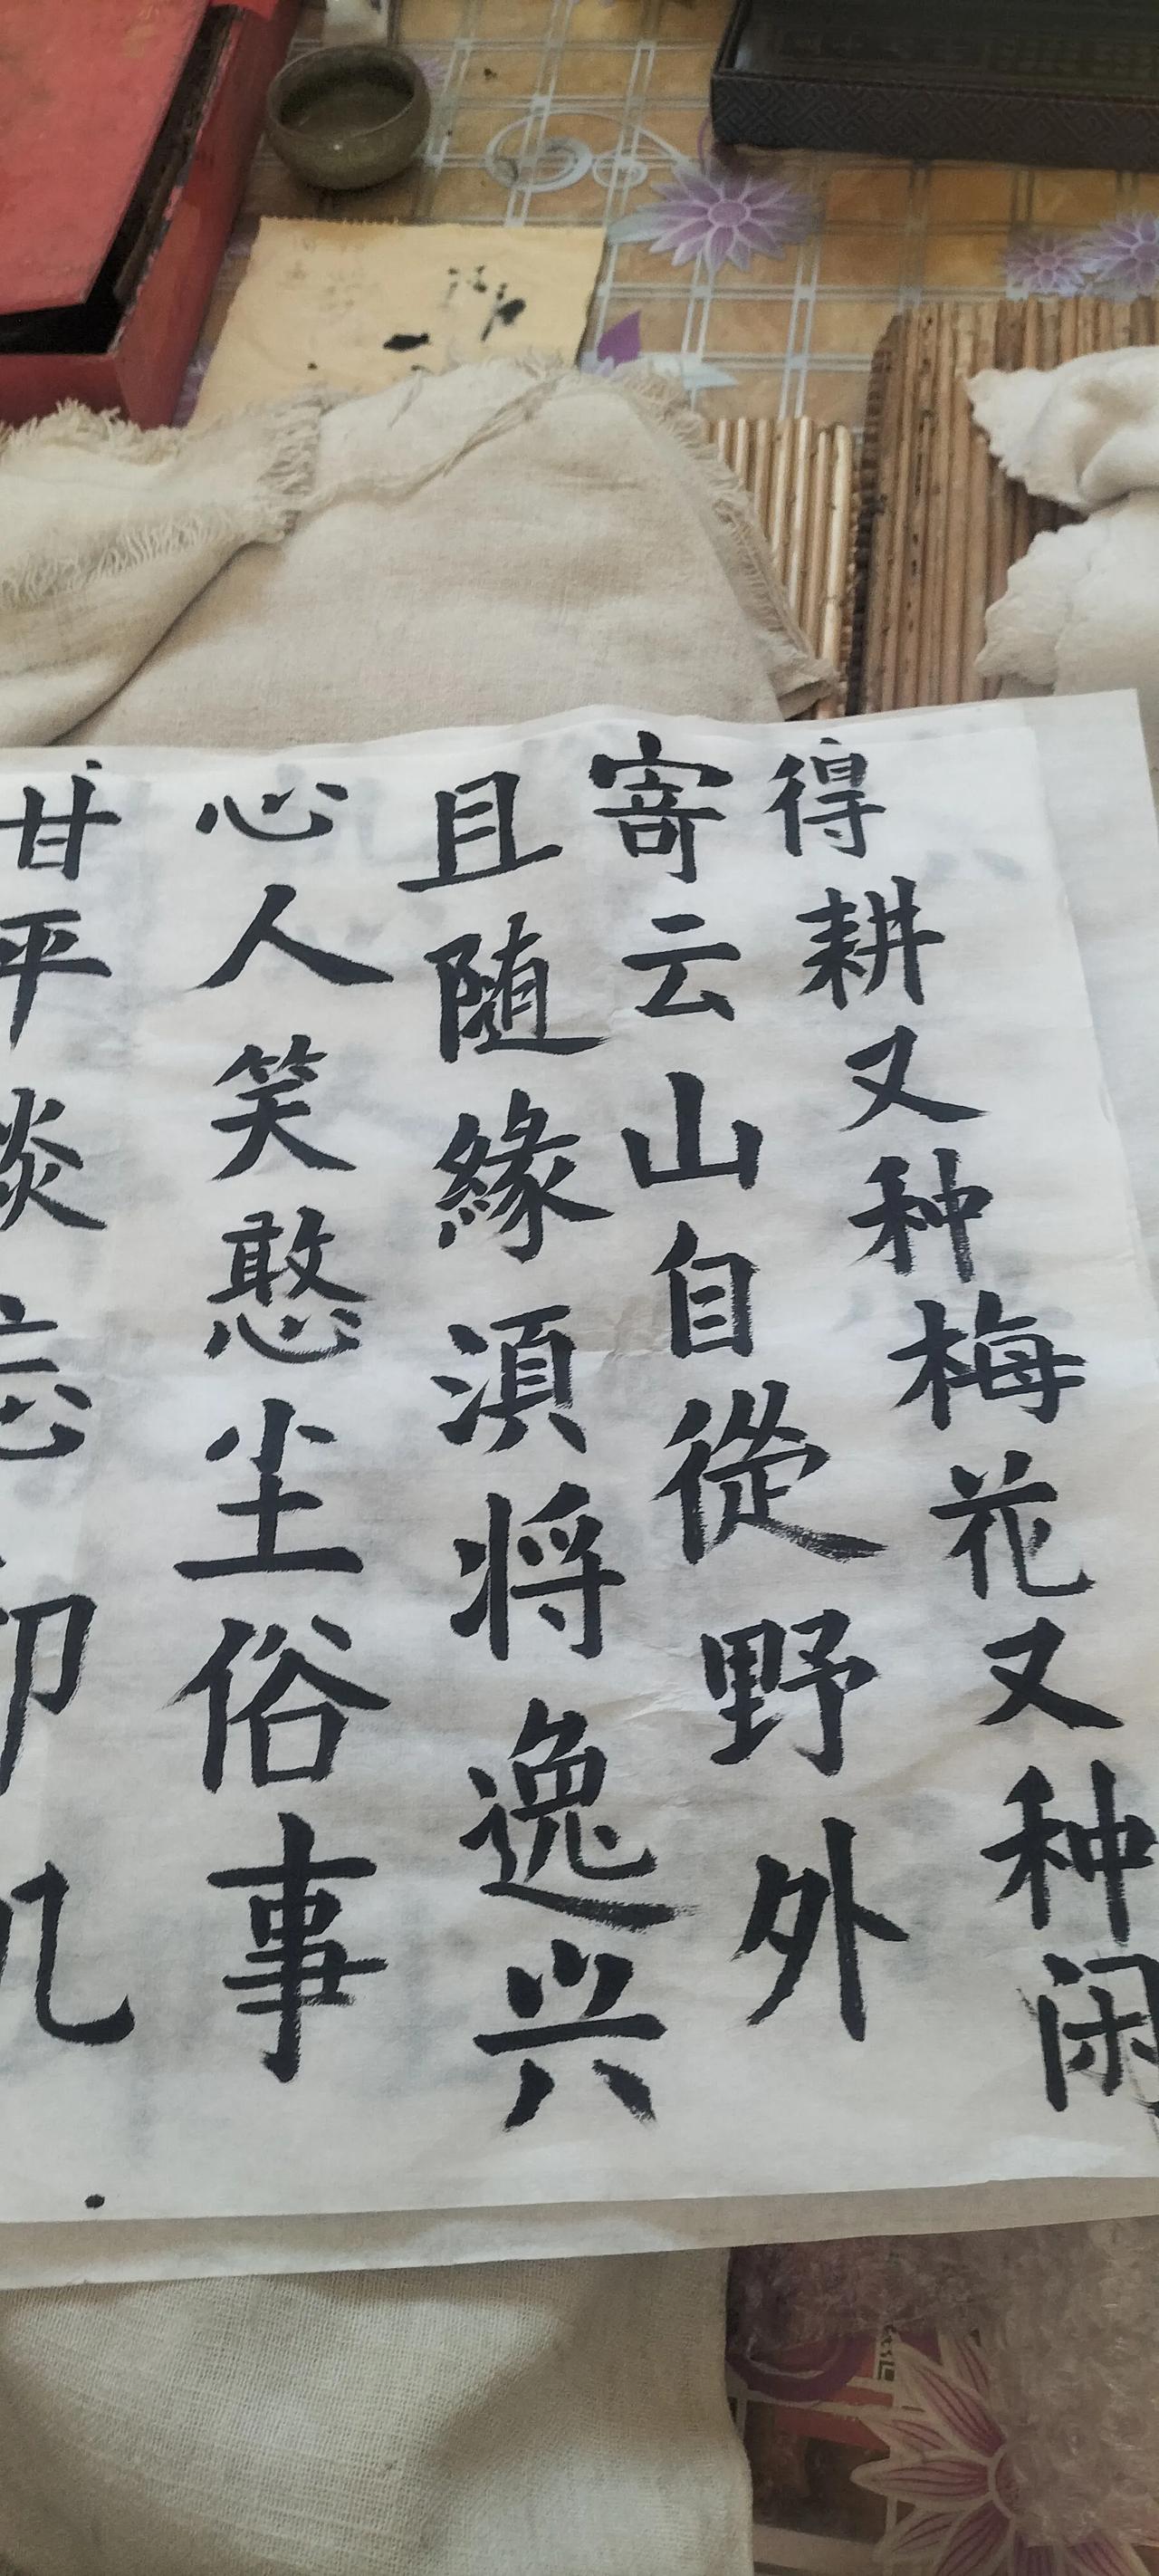 得耕又种梅花又种闲
寄云山自從野外
且随緣湏将逸兴
心人笑憨尘俗事
甘平淡忘却机